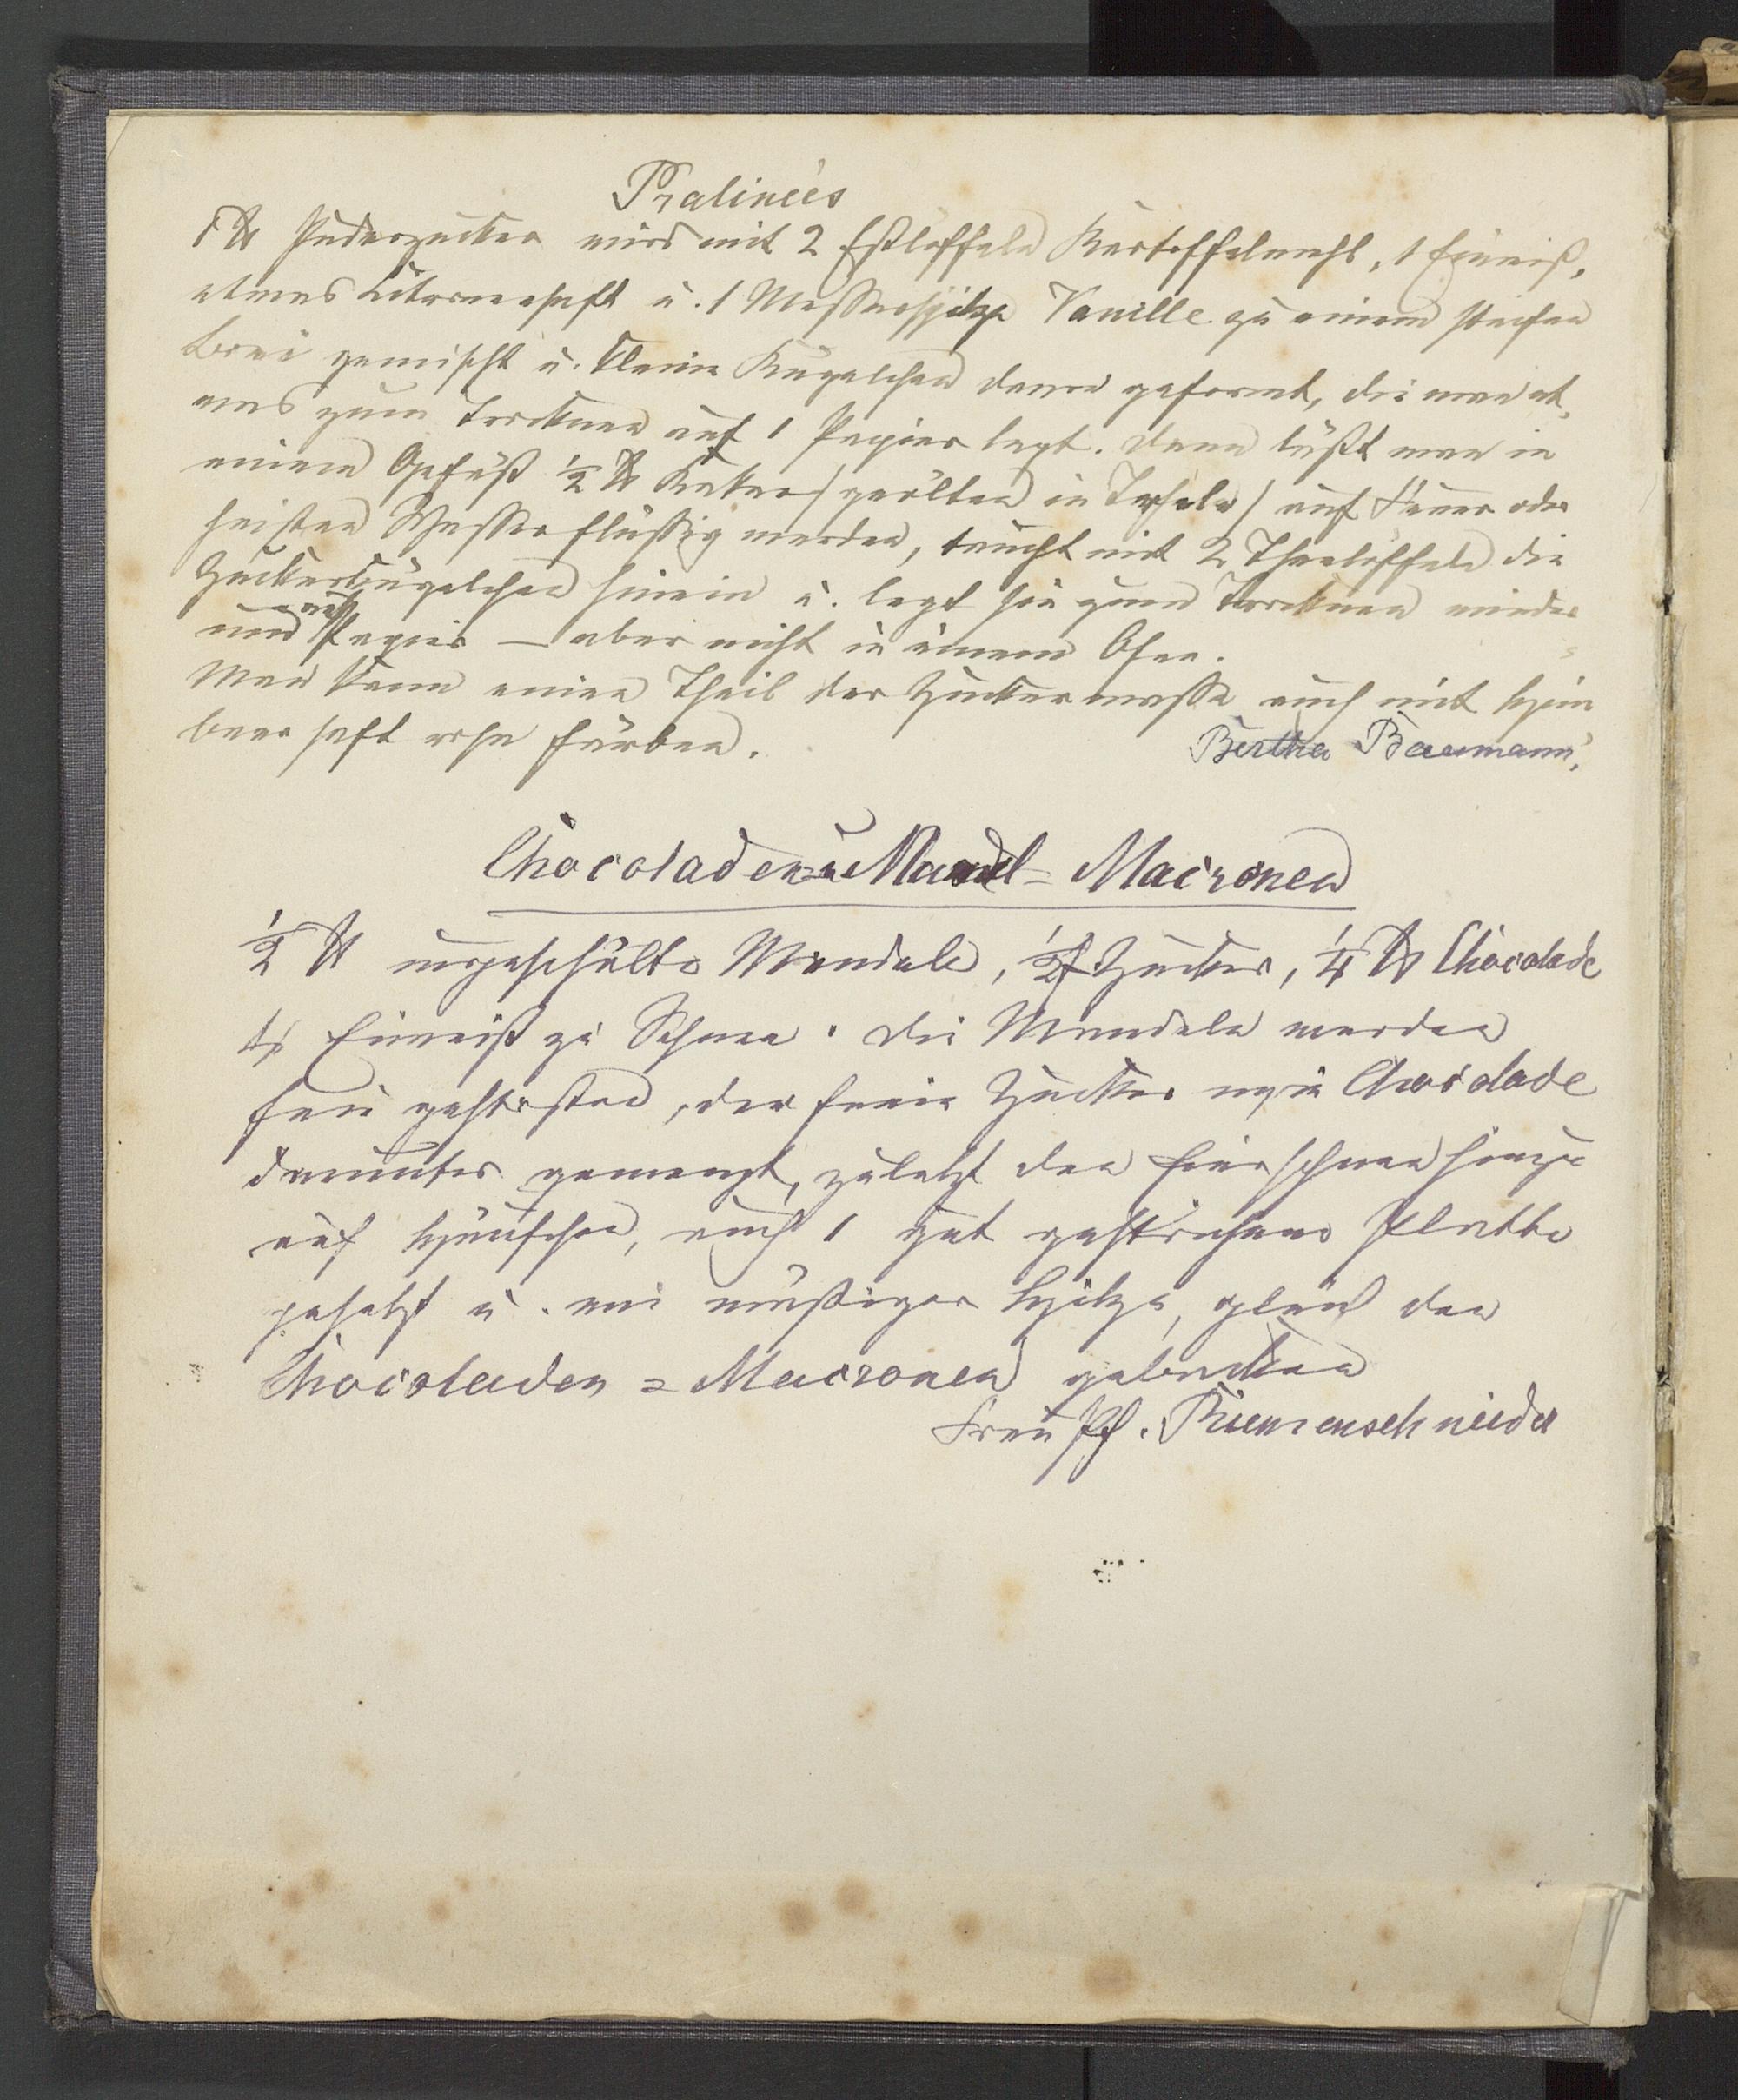 Pralinées
1 ℔ Puderzucker wird mit 2 Eßlöffeln Kartoffelmehl, 1 Eiweiß,
etwas Citronensaft u. 1 Messerspitze Vanille zu einem steifen
Brei gemischt u. kleine Kügelchen davon geformt, die man et,
was zum Trocknen auf 1 Papier legt. Dann läßt man in
einem Gefäß ½ ℔ (geölten in Tafeln) auf Feuer oder
heißem Wasser flüssig werden, taucht mit 2 Theelöffeln die
Zuckerkügelchen hinein u. legt sie zum Trocknen wieder
auf Papier — aber nicht in einem Ofen.
Man kann einen Theil der Zuckermasse auch mit Him
beersaft rosa färben.
Bertha Baumann.
Chocoladen u Mandel = Macronen
½ ℔ ungeschälte Mandeln, ½ ℔ Zucker, ¼ ℔ Chocolade
4 Eiweiß zu Schnee. Die Mandeln werden
fein gestoßen, der feine Zucker u. Chocolade
darunter gemengt, zuletzt den Eierschnee hinzu
auf Häufchen, auf 1 gut gestrichene Platte
gesetzt u. bei mäßiger Hitze, gleich den
Chocoladen = Macronen gebacken
Frau Pf. Riemenschneider